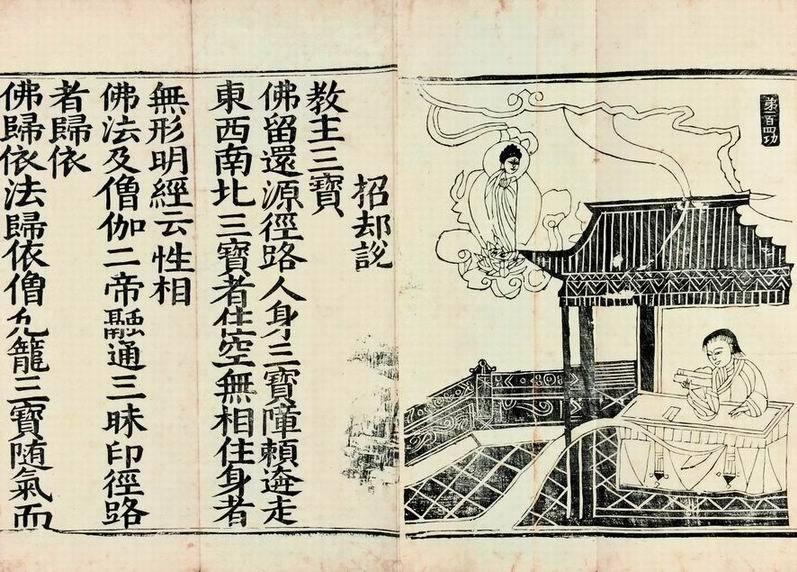 第一百四功
招却説
教主三寶
佛留還源徑路人身三寶障頼遊走
東西南北三寶者住空無相住身者
無形明經云性相
佛法及僧伽二帝融通三昧印徑路
者歸依
佛歸依法歸依僧允籠三寶随氣而